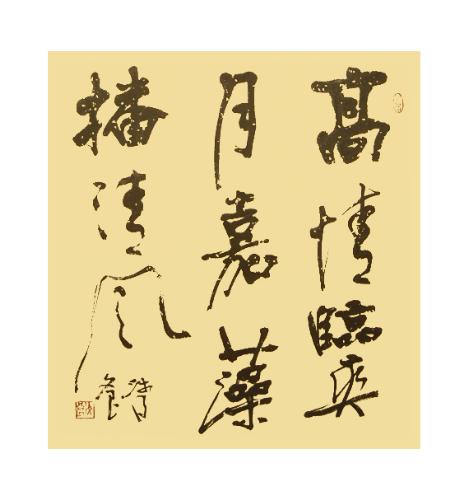 高情臨爽
月嘉藻
播清風